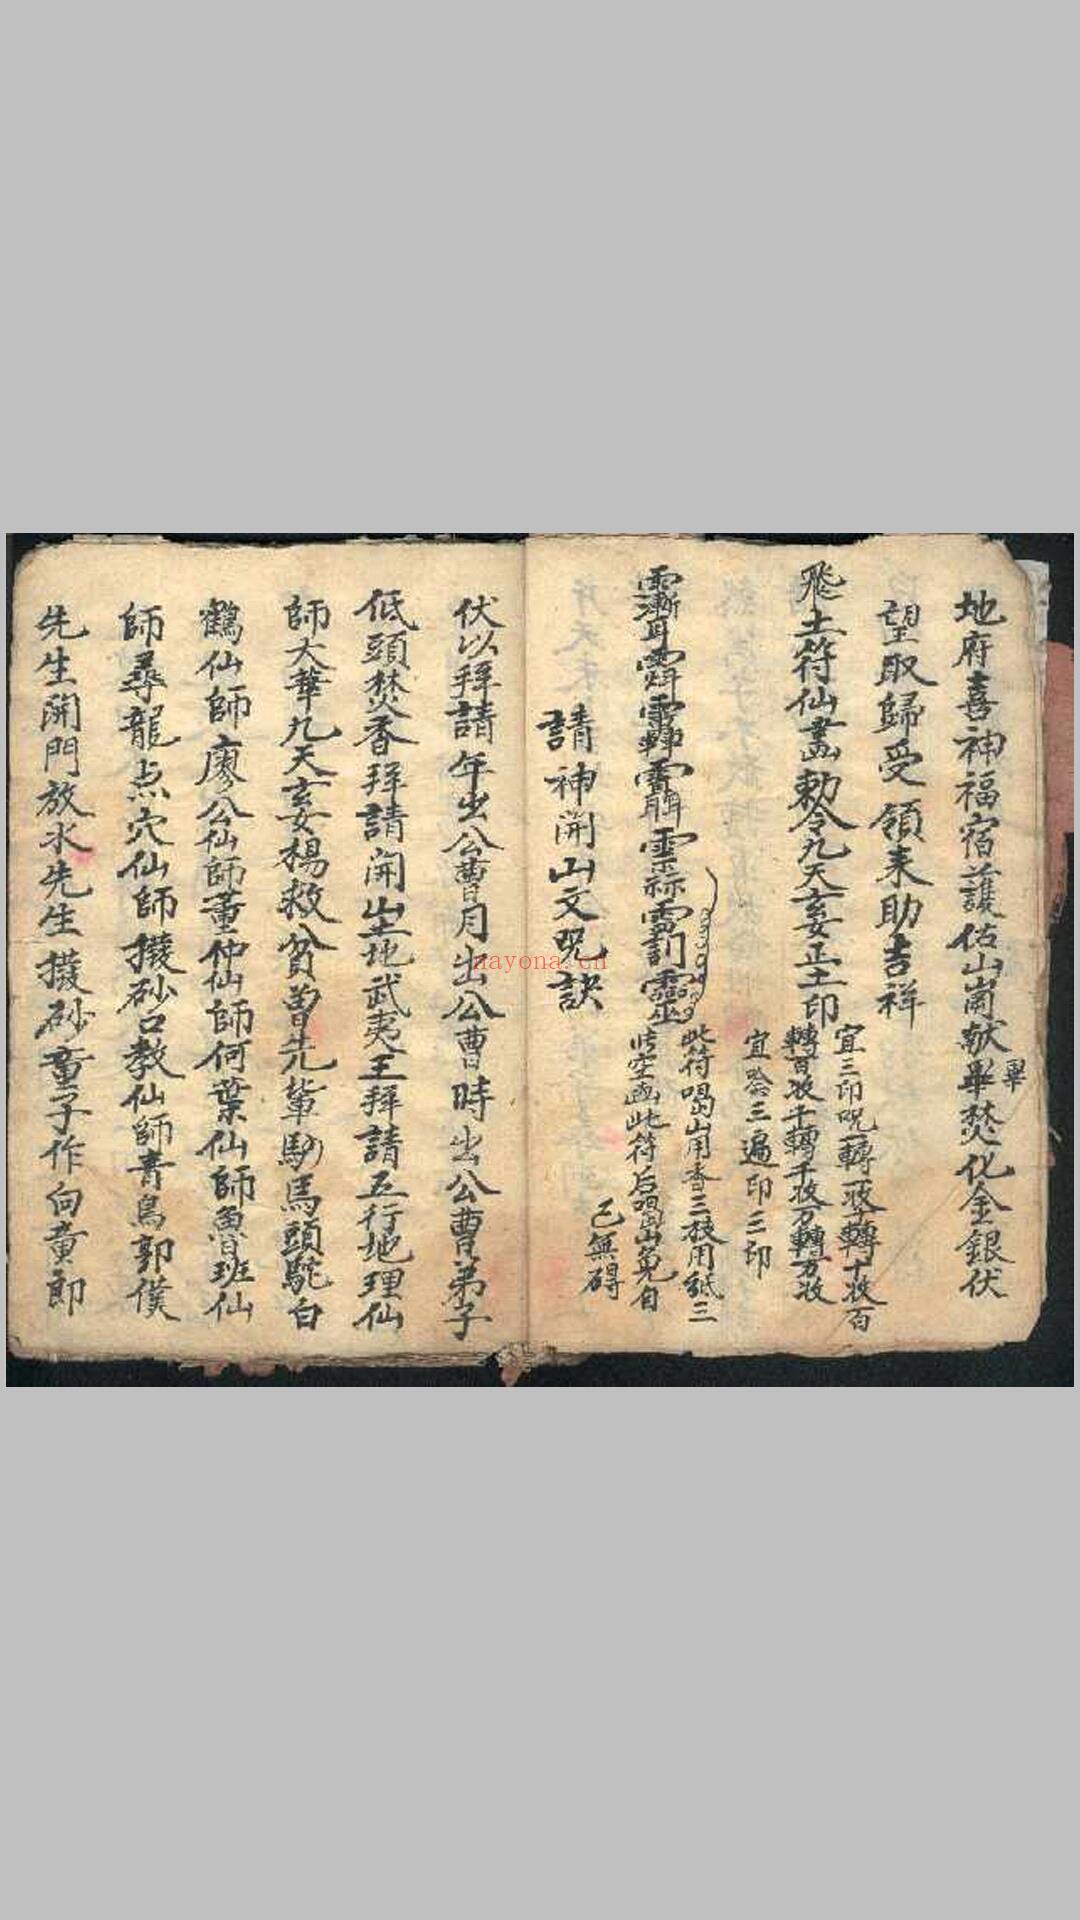 地府喜神福宿護佑山崗献畢焚化金銀伏
畢
望取歸受領来助吉祥
宜三印呪一轉一收十轉十收百
轉百收千轉千收万轉万收
飛土符仙書勅令九天玄女正土印
宜念三遍印三印
此符喝山用香三枝用紙三
此空画此符后喝山免自
己無碍
請神開山文呪訣
伏以拜請年出公曹月出公曹時出公曹弟子
低頭焚香拜請開山土地武夷王拜請五行地理仙
師大華九天玄女楊救貧曾先輩馿馬頭駝白
鶴仙師廖公仙師董仲仙師何葉仙師魯班仙
師尋龍点穴仙師撥砂口教仙師青烏郭僕
先生開門放水先生撥砂童子作向童郎
nayona.cn